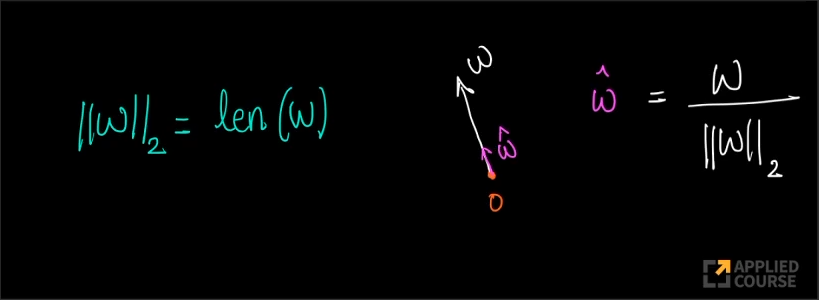 ||w||₂ = len(w)
w
ŵ
0
ŵ = w / ||w||₂
APPLIED
COURSE